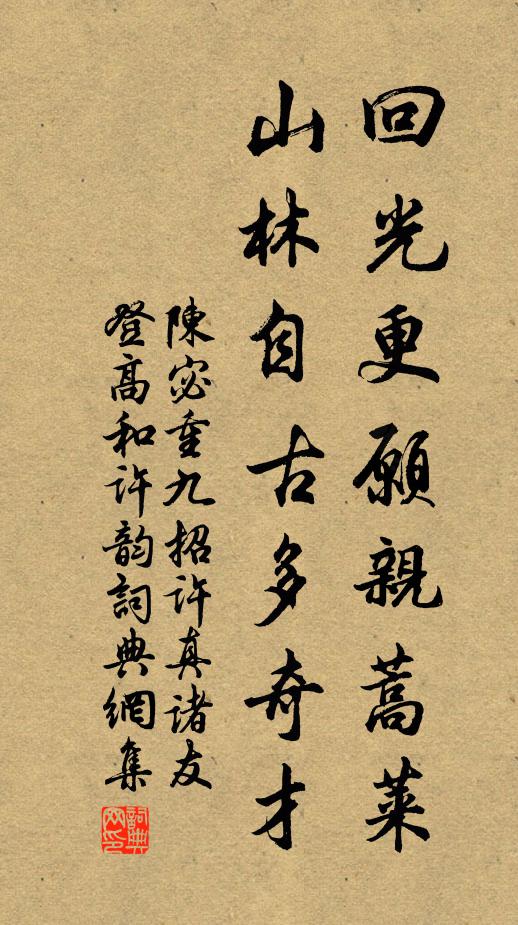 回光更願親蒿萊
山林自古多奇才
陳宓重九招許真諸友
登高和許韵詞典網集
詞典网印